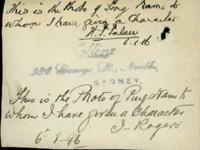 This is the Photo of Song Nam to
whom I have given a Character
230 George St. North
SYDNEY.
This is the Photo of Ping Nam to
whom I have given a Character
J. Rogers